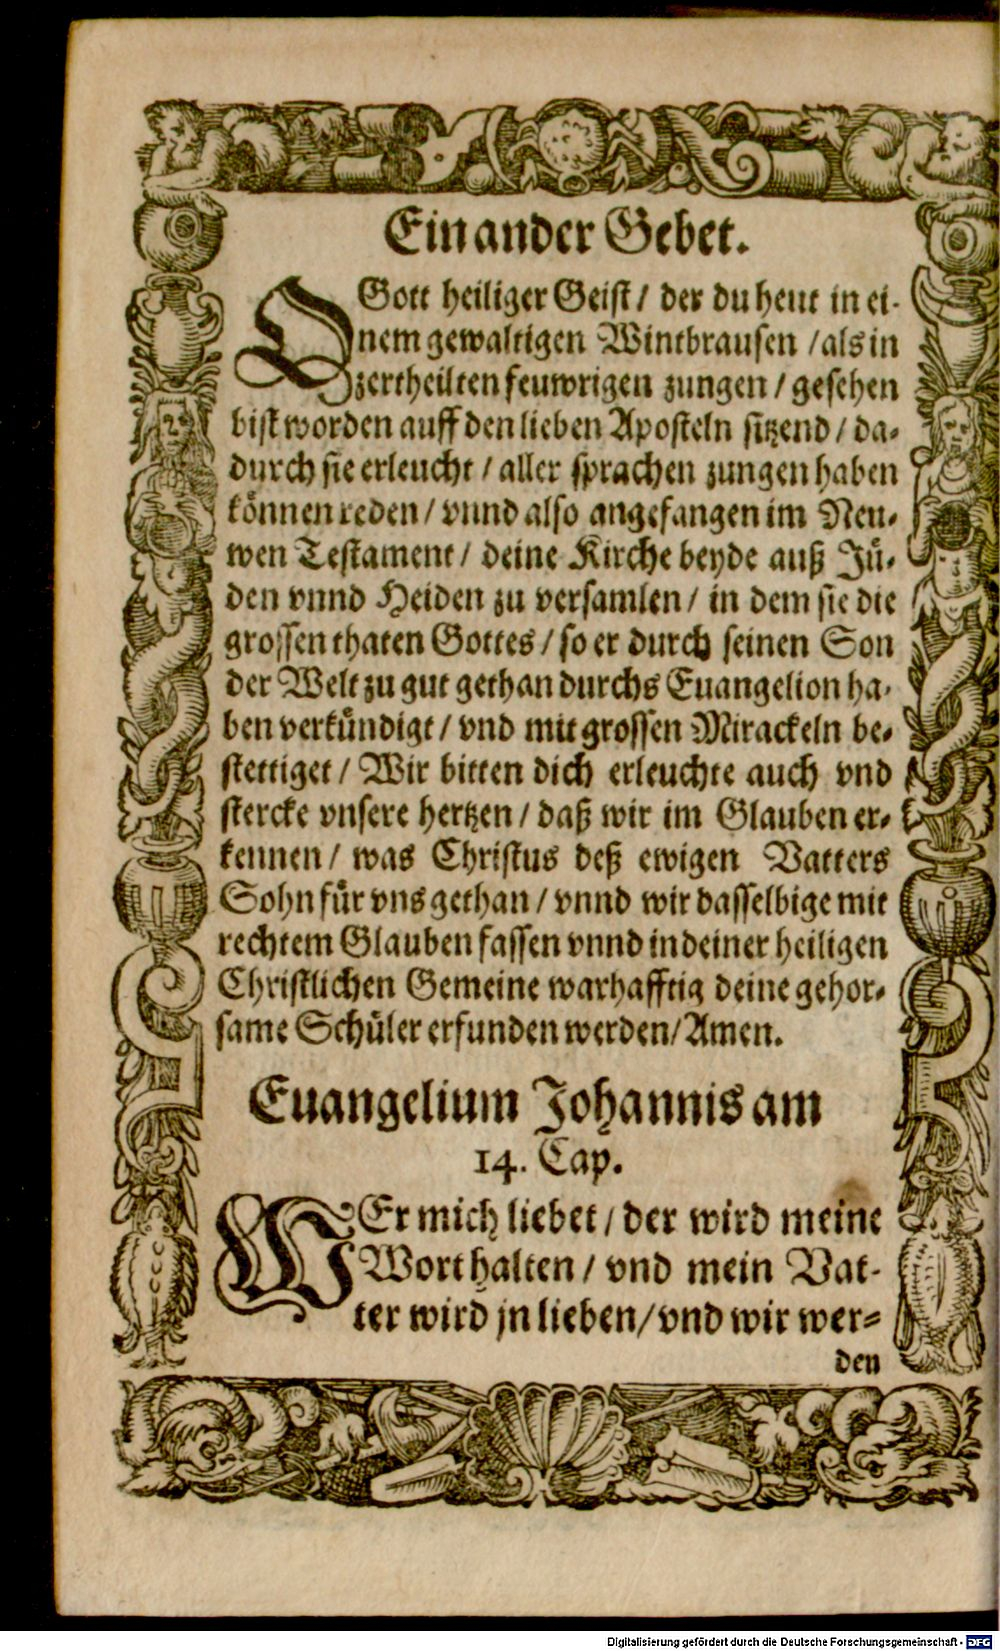 Ein ander Gebet.
O Gott heiliger Geist / der du heut in ei-
nem gewaltigen Wintbrausen / als in
zertheilten feuwrigen zungen / gesehen
bist worden auff den lieben Aposteln sitzend / da-
durch sie erleucht / aller sprachen zungen haben
können reden / vnnd also angefangen im Neu-
wen Testament / deine Kirche beyde auß Jü-
den vnnd Heiden zu versamlen / in dem sie die
grossen thaten Gottes / so er durch seinen Son
der Welt zu gut gethan durchs Euangelion ha-
ben verkündigt / vnd mit grossen Mirackeln be-
stettiget / Wir bitten dich erleuchte auch vnd
stercke vnsere hertzen / daß wir im Glauben er-
kennen / was Christus deß ewigen Vatters
Sohn für vns gethan / vnnd wir dasselbige mit
rechtem Glauben fassen vnnd in deiner heiligen
Christlichen Gemeine warhafftig deine gehor-
same Schüler erfunden werden / Amen.
Euangelium Johannis am
14. Cap.
WEr mich liebet / der wird meine
Wort halten / vnd mein Vat-
ter wird jn lieben / vnd wir wer-
den
Digitalisierung gefördert durch die Deutsche Forschungsgemeinschaft - DFG